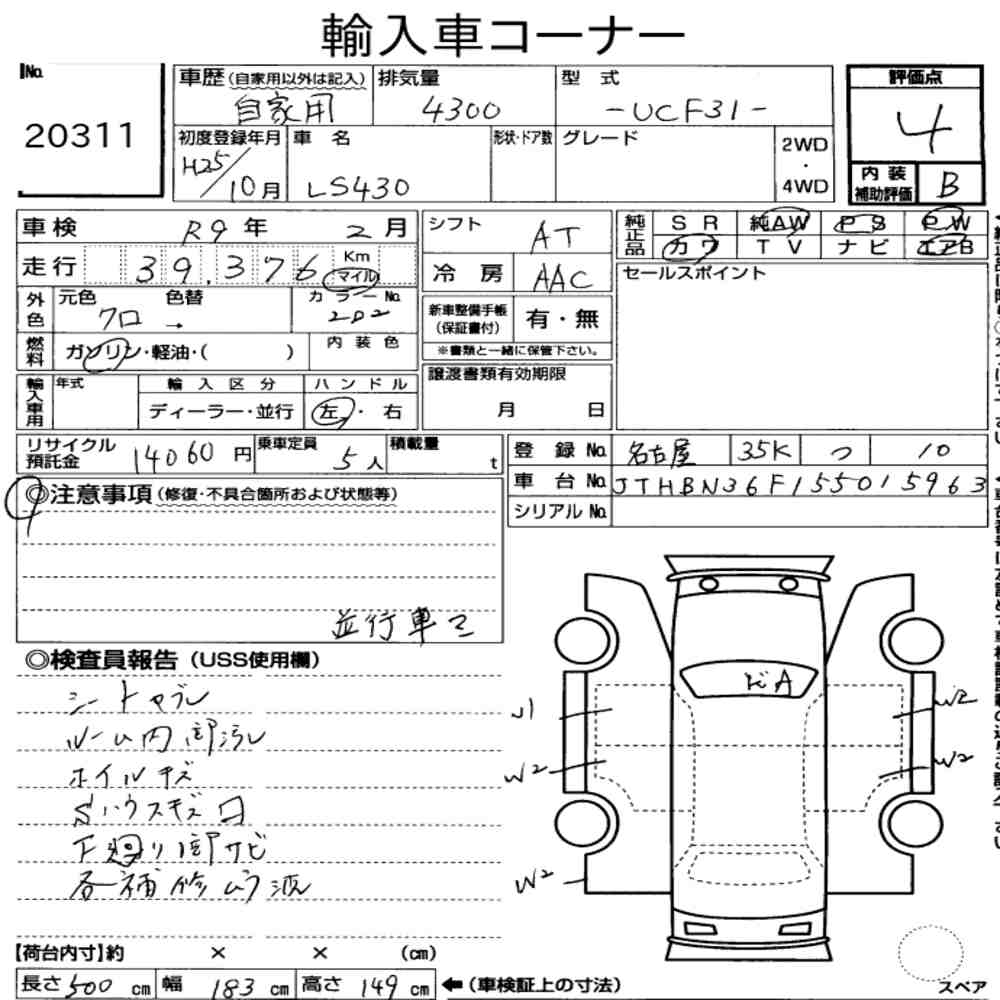 輸入車コーナー
No. 20311
車歴(自家用以外は記入) 自家用
排気量 4300
型式 -UCF31-
評価点 4
初度登録年月 H25/10月
車名 LS430
形状・ドア数
グレード
2WD・4WD
内装補助評価 B
車検 R9年 2月
走行 39,376 Km マイル
外色 元色 クロ → 色替
カラーNo. 202
燃料 ガソリン・軽油・( )
内装色
シフト AT
冷房 AAC
新車整備手帳(保証書付) 有・無
※書類と一緒に保管下さい。
純正品 SR 純AW PS PW
カワ TV ナビ エアB
セールスポイント
輸入車用 年式
輸入区分 ディーラー・並行
ハンドル 左・右
譲渡書類有効期限 月 日
リサイクル預託金 14060円
乗車定員 5人
積載量 t
登録No. 名古屋 35K つ 10
車台No. JTHBN36F155015963
シリアルNo.
◎注意事項(修復・不具合箇所および状態等)
並行車
◎検査員報告(USS使用欄)
シートヤブレ
ルーム内部汚レ
ホイルキズ
下廻り部サビ
各補修ムラ波
A
W2
W2
W2
W2
【荷台内寸】約 × × (cm)
長さ500cm 幅183cm 高さ149cm ←(車検証上の寸法)
スペア